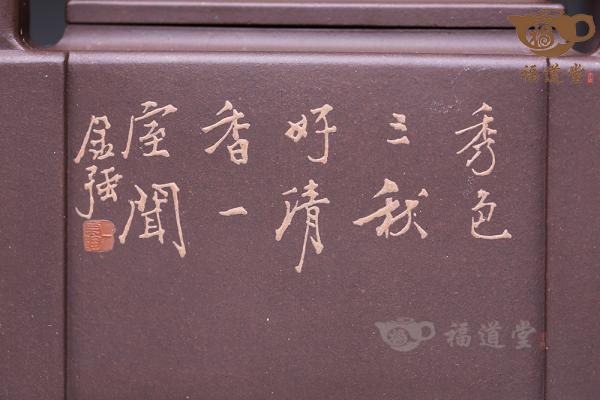 秀色
三秋
好清
香一
室聞
金强
福道堂
福道堂